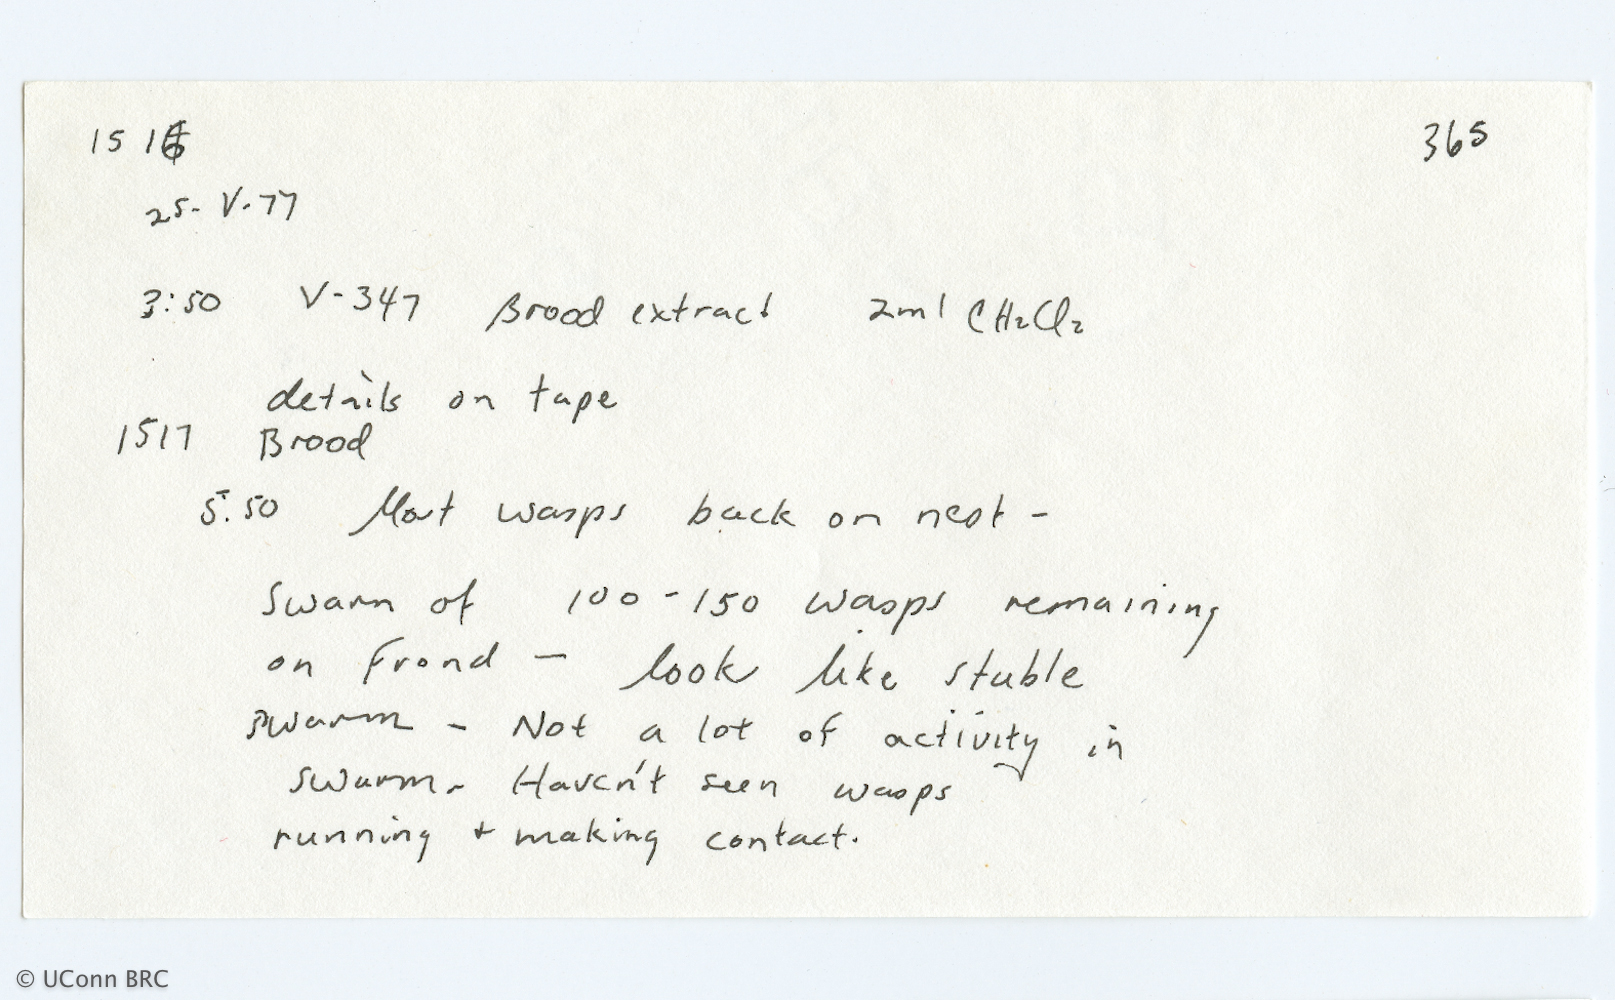 1516 365
25-V-77
3:50 V-347 Brood extract 2ml CH2Cl2
details on tape
1517 Brood
5:50 Most wasps back on nest -
Swarm of 100-150 wasps remaining
on frond — look like stable
swarm - Not a lot of activity in
swarm - Haven't seen wasps
running + making contact.
© UConn BRC